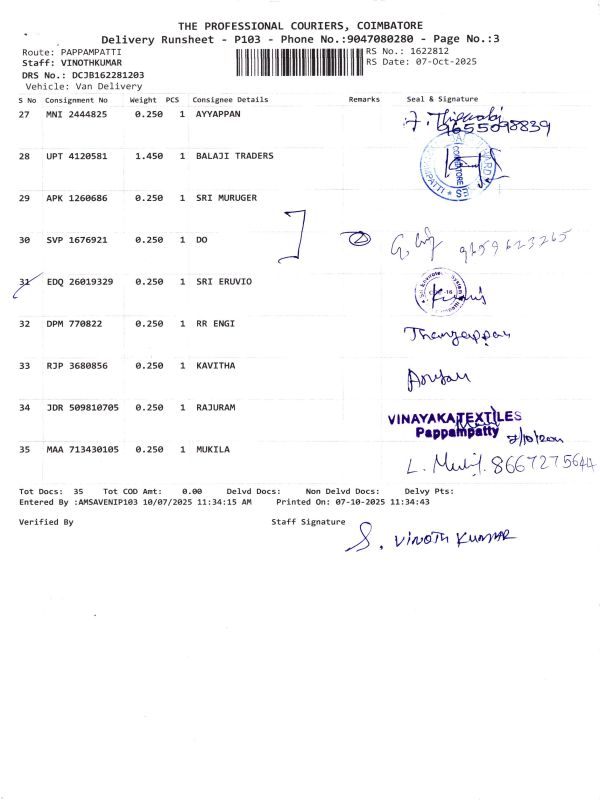 THE PROFESSIONAL COURIERS, COIMBATORE
Delivery Runsheet - P103 - Phone No.:9047080280 - Page No.:3
Route: PAPPAMPATTI RS No.: 1622812
Staff: VINOTHKUMAR RS Date: 07-Oct-2025
DRS No.: DCJB162281203
Vehicle: Van Delivery
S No Consignment No Weight PCS Consignee Details Remarks Seal & Signature
27 MNI 2444825 0.250 1 AYYAPPAN
9655098839
28 UPT 4120581 1.450 1 BALAJI TRADERS
29 APK 1260686 0.250 1 SRI MURUGER
30 SVP 1676921 0.250 1 DO 2 9659623265
31 EDQ 26019329 0.250 1 SRI ERUVIO
32 DPM 770822 0.250 1 RR ENGI Thangappan
33 RJP 3680856 0.250 1 KAVITHA
34 JDR 509810705 0.250 1 RAJURAM VINAYAKA TEXTILES
Pappampatty
35 MAA 713430105 0.250 1 MUKILA L. 8667275644
Tot Docs: 35 Tot COD Amt: 0.00 Delvd Docs: Non Delvd Docs: Delvy Pts:
Entered By :AMSAVENIP103 10/07/2025 11:34:15 AM Printed On: 07-10-2025 11:34:43
Verified By Staff Signature
S. VINOTH KUMAR